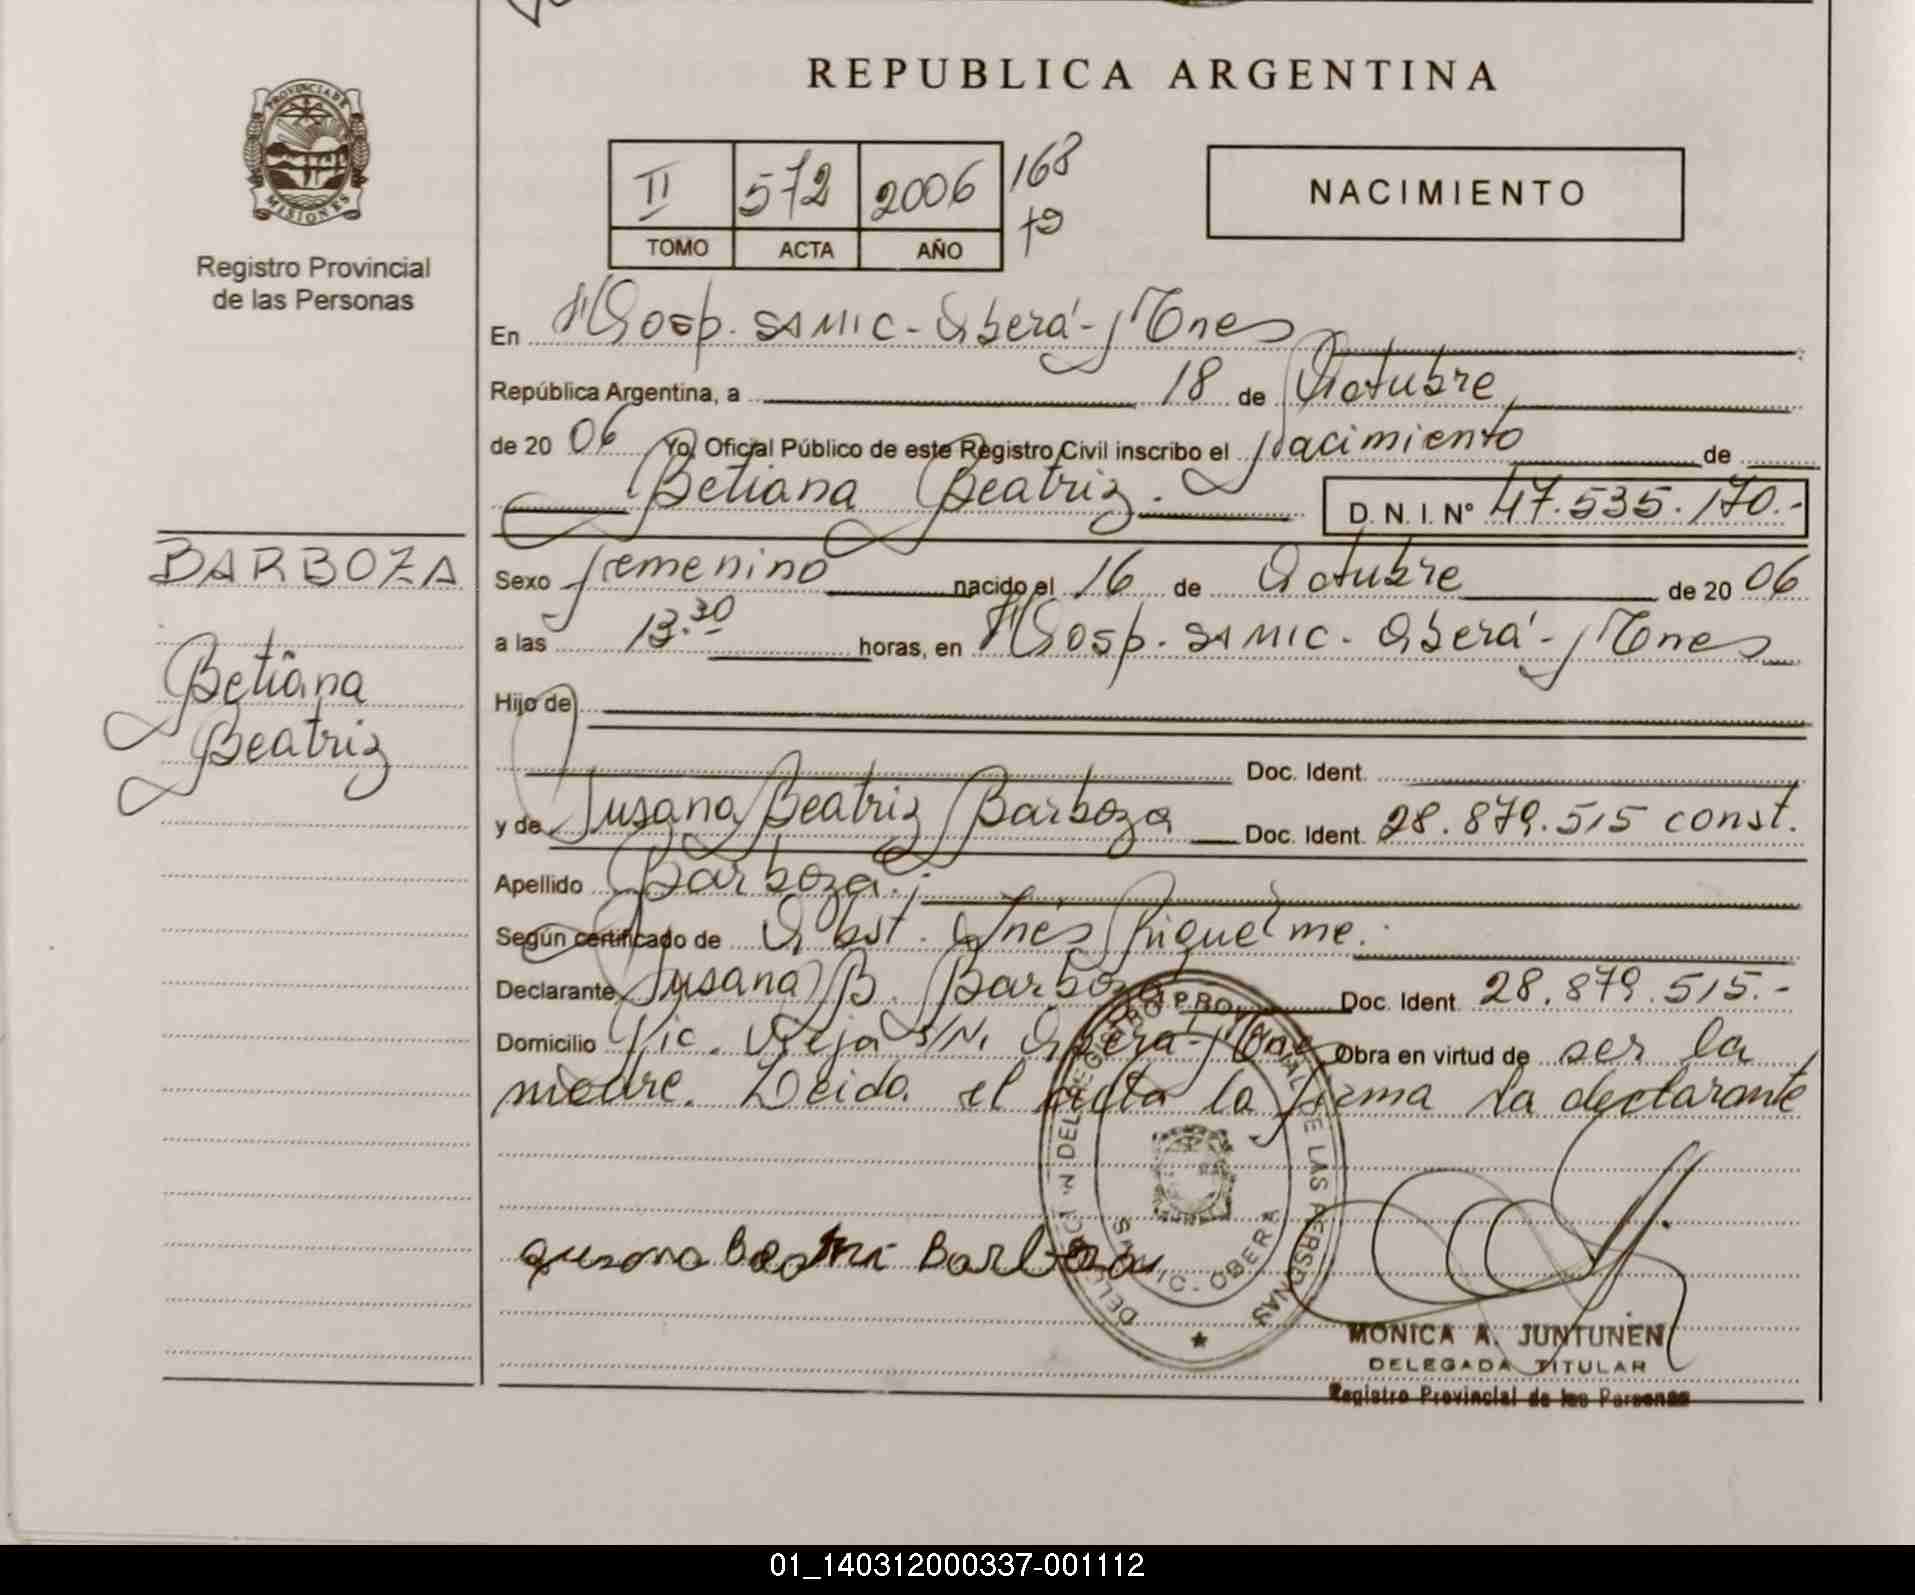 REPUBLICA ARGENTINA
PROVINCIA DE MISIONES
Registro Provincial
de las Personas
II 572 2006 168
TOMO ACTA AÑO
NACIMIENTO
En Hosp. SAMIC - Oberá - Mnes
República Argentina, a 18 de Octubre
de 20 06 Yo, Oficial Público de este Registro Civil inscribo el Nacimiento de
Betiana Beatriz. D. N. I. N° 47.535.170.-
BARBOZA
Betiana
Beatriz
Sexo femenino nacido el 16 de Octubre de 20 06
a las 13.30 horas, en Hosp. SAMIC - Oberá - Mnes
Hijo de
Doc. Ident.
y de Susana Beatriz Barboza Doc. Ident. 28.879.515 const.
Apellido Barboza.
Según certificado de Obst. Inés Riquelme.
Declarante Susana B. Barboza Doc. Ident. 28.879.515.-
Domicilio Pic. Vieja S/N. Oberá - Mnes Obra en virtud de ser la
madre. Leida el acta la firma la declarante
DELEGACION DEL REGISTRO PROVINCIAL DE LAS PERSONAS
OBERA
MONICA A. JUNTUNEN
DELEGADA TITULAR
Registro Provincial de las Personas
01_140312000337-001112